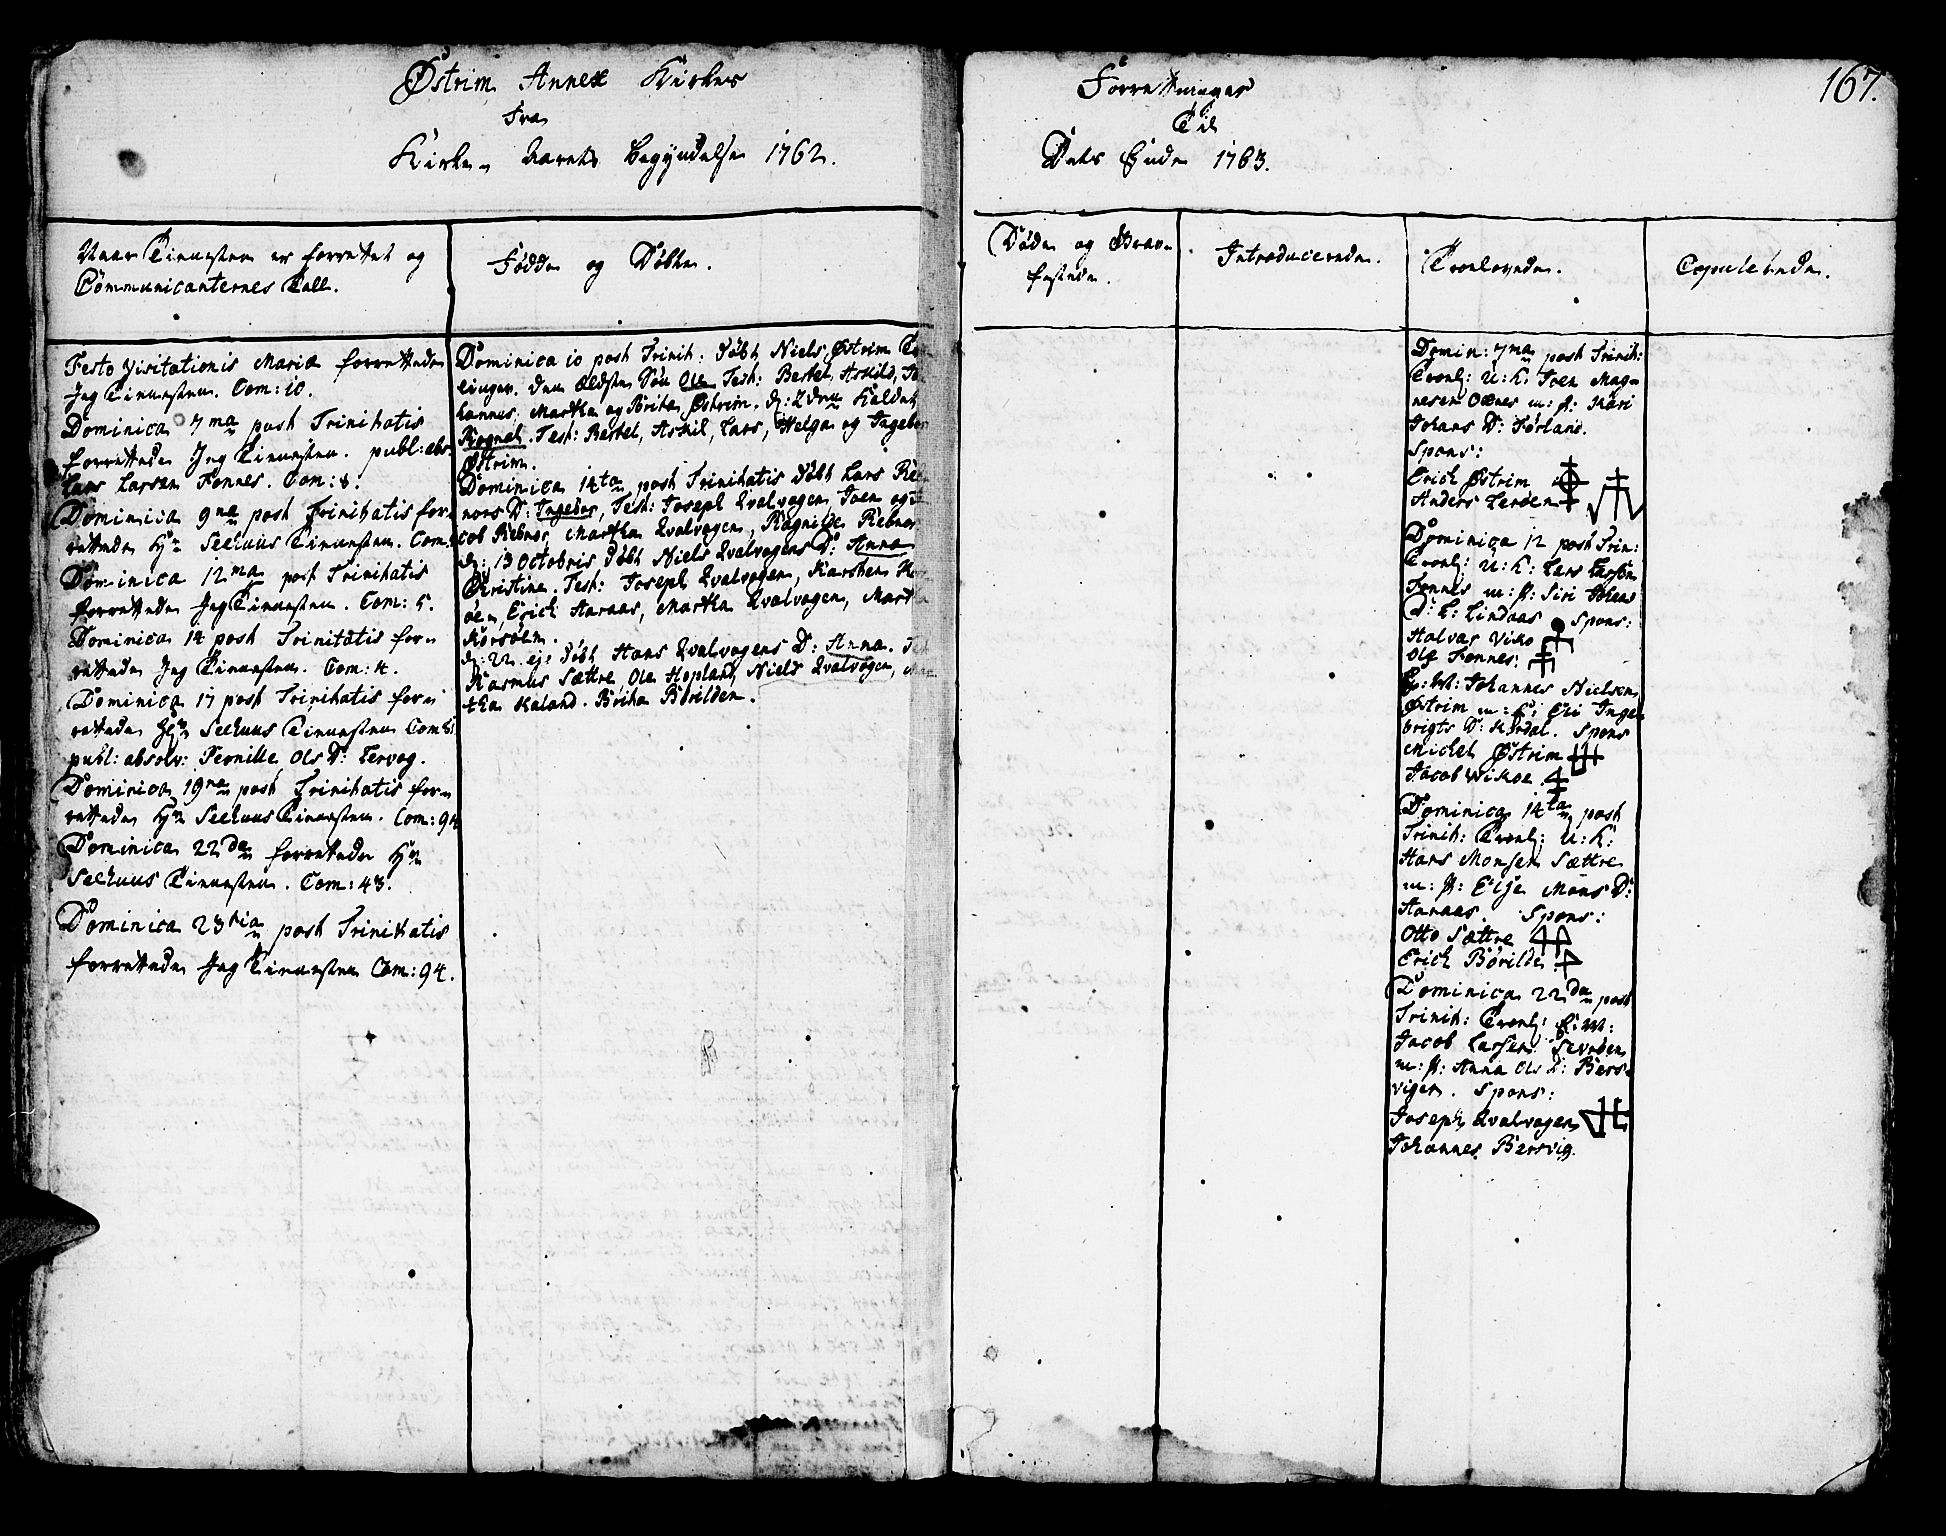 Østrim Annex Kirkes
Fra
Kirke Aarets begyndelse 1762.
Forretninger
Til
Dets Ende 1763.
167.
Naar Tienesten er forrettet og
Communicanternes Tall.
Fødde og Døbte.
Døde og Grav-
festede.
Introducerede.
Trolovede.
Copulerede.
Festo Visitationis Mariæ forrettede
Jeg Tienesten. Com: 10.
Dominica 7ma post Trinitatis
forrettede Jeg Tienesten. publ: abs:
Lars Larsen Fonnes. Com: 8.
Dominica 9na post Trinitatis for-
rettede Hr Seehuus Tienesten. Com:
Dominica 12ma post Trinitatis
forrettede Jeg Tienesten. Com: 5.
Dominica 14 post Trinitatis for-
rettede Jeg Tienesten. Com: 4.
Dominica 17 post Trinitatis for-
rettede Hr Seehuus Tienesten Com 81
publ: absolv: Pernille Ols D: Lervog.
Dominica 19na post Trinitatis for-
rettede Hr Seehuus Tienesten. Com: 94
Dominica 22da forrettede Hr
Seehuus Tienesten. Com: 43.
Dominica 23tia post Trinitatis
forrettede Jeg Tienesten Com: 94.
Dominica 10 post Trinit: Døbt Niels Østrim
linger. den ældste Søn Ole Test: Bertel, Askild, Jo-
hannes, Martha og Brita Østrim. d: 2den Kaldet
Rognel. Test: Bertel, Askil, Lars, Helga og Ingebor
Østrim.
Dominica 14ta post Trinitatis Døbt Lars Reb-
nors D: Ingebor, Test: Joseph Qvalvogen Joen og Ja-
cob Rebnor, Martha Qvalvogen, Rognilde Rebnor
d: 13 Octobris Døbt Niels Qvalvogens D: Anna
Christine. Test: Joseph Qvalvogen, Karsten
øen, Erich Aaraas, Martha Qvalvogen, Martha
Korsøen.
d: 22 ej: Døbt Hans Qvalvogens D: Anna. Test
Rasmus Sættre Ole Hopland, Niels Qvalvogen, Mar-
tha Kaland. Brita Børilden.
Domin: 7ma post Trinit:
Trol: U: K: Joen Mag-
nesen Odnes m: P: Kari
Johans D: Førland.
Spons:
Erich Østrim
Anders Lerøen
Dominica 12 post Trin:
Trol: U: K: Lars Larsen
Fonnes m: P: Siri Johans
D: L: Lindaas Spons:
Halvar Viko
Ole Fonnes:
E: M: Johannes Nielsen
Østrim m: P: Eli Inge-
brigts D: Hordal. Spons
Michel Østrim
Jacob Wikoe
Dominica 14ta post
Trinit: Trol: U: K:
Hans Monsen Sættre
m: P: Elsje Mons D:
Aaraas. Spons:
Otto Sættre
Erich Børilde
Dominica 22da post
Trinit: Trol: E: M:
Jacob Larsen
m: P: Anna Ols D: Bers-
vigen. Spons:
Joseph Qvalvogen
Johannes Bersvig.